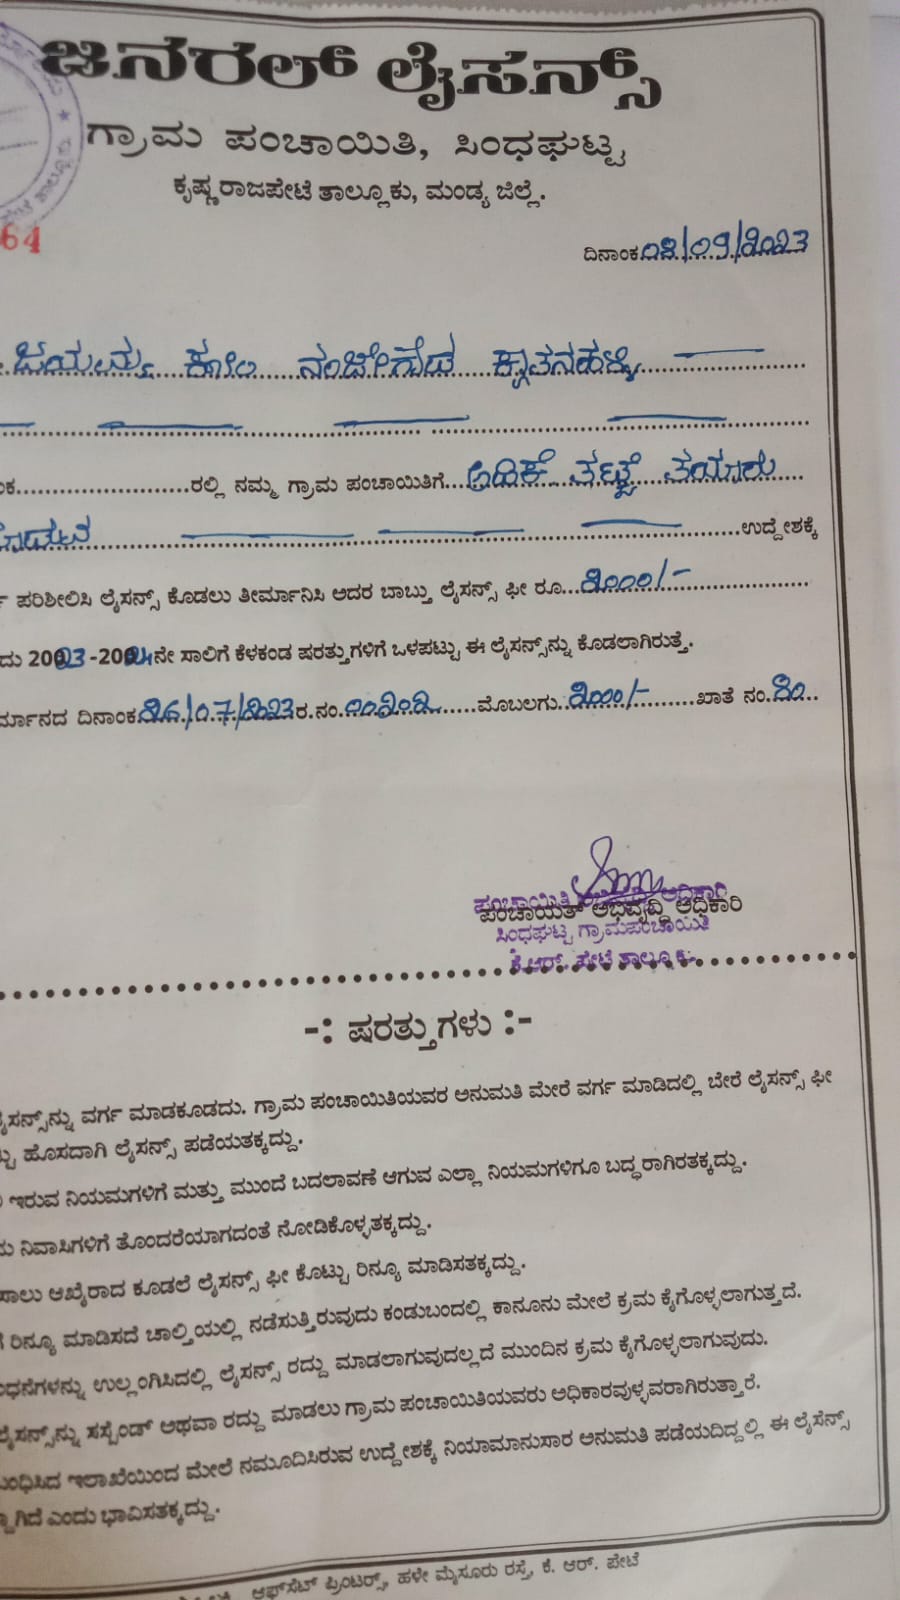 ಜನರಲ್ ಲೈಸನ್ಸ್
ಗ್ರಾಮ ಪಂಚಾಯಿತಿ, ಸಿಂಧಘಟ್ಟ
ಕೃಷ್ಣರಾಜಪೇಟೆ ತಾಲ್ಲೂಕು, ಮಂಡ್ಯ ಜಿಲ್ಲೆ.
64
ದಿನಾಂಕ 08/09/2023
ಜಯಮ್ಮ ಕೋಂ ನಂಜೇಗೌಡ
ರಲ್ಲಿ ನಮ್ಮ ಗ್ರಾಮ ಪಂಚಾಯಿತಿಗೆ ಅಡಿಕೆ ತಟ್ಟೆ ತಯಾರು
ಉದ್ದೇಶಕ್ಕೆ
ಪರಿಶೀಲಿಸಿ ಲೈಸನ್ಸ್ ಕೊಡಲು ತೀರ್ಮಾನಿಸಿ ಅದರ ಬಾಬ್ತು ಲೈಸನ್ಸ್ ಫೀ ರೂ
2023-2024ನೇ ಸಾಲಿಗೆ ಕೆಳಕಂಡ ಷರತ್ತುಗಳಿಗೆ ಒಳಪಟ್ಟು ಈ ಲೈಸನ್ಸ್‌ನ್ನು ಕೊಡಲಾಗಿರುತ್ತೆ.
ದಿನಾಂಕ ರ.ನಂ. ಮೊಬಲಗು ಖಾತೆ ನಂ.
ಪಂಚಾಯತ್ ಅಭಿವೃದ್ಧಿ ಅಧಿಕಾರಿ
ಸಿಂಧಘಟ್ಟ ಗ್ರಾಮಪಂಚಾಯಿತಿ
ಕೆ.ಆರ್. ಪೇಟೆ ತಾಲ್ಲೂಕು
-: ಷರತ್ತುಗಳು :-
ಲೈಸನ್ಸ್‌ನ್ನು ವರ್ಗ ಮಾಡಕೂಡದು. ಗ್ರಾಮ ಪಂಚಾಯಿತಿಯವರ ಅನುಮತಿ ಮೇರೆ ವರ್ಗ ಮಾಡಿದಲ್ಲಿ ಬೇರೆ ಲೈಸನ್ಸ್ ಫೀ
ಹೊಸದಾಗಿ ಲೈಸನ್ಸ್ ಪಡೆಯತಕ್ಕದ್ದು.
ಇರುವ ನಿಯಮಗಳಿಗೆ ಮತ್ತು ಮುಂದೆ ಬದಲಾವಣೆ ಆಗುವ ಎಲ್ಲಾ ನಿಯಮಗಳಿಗೂ ಬದ್ಧರಾಗಿರತಕ್ಕದ್ದು.
ನಿವಾಸಿಗಳಿಗೆ ತೊಂದರೆಯಾಗದಂತೆ ನೋಡಿಕೊಳ್ಳತಕ್ಕದ್ದು.
ಸಾಲು ಆಖೈರಾದ ಕೂಡಲೆ ಲೈಸನ್ಸ್ ಫೀ ಕೊಟ್ಟು ರಿನ್ಯೂ ಮಾಡಿಸತಕ್ಕದ್ದು.
ರಿನ್ಯೂ ಮಾಡಿಸದೆ ಚಾಲ್ತಿಯಲ್ಲಿ ನಡೆಸುತ್ತಿರುವುದು ಕಂಡುಬಂದಲ್ಲಿ ಕಾನೂನು ಮೇಲೆ ಕ್ರಮ ಕೈಗೊಳ್ಳಲಾಗುತ್ತದೆ.
ಉಲ್ಲಂಗಿಸಿದಲ್ಲಿ ಲೈಸನ್ಸ್ ರದ್ದು ಮಾಡಲಾಗುವುದಲ್ಲದೆ ಮುಂದಿನ ಕ್ರಮ ಕೈಗೊಳ್ಳಲಾಗುವುದು.
ಲೈಸನ್ಸ್‌ನ್ನು ಸಸ್ಪೆಂಡ್ ಅಥವಾ ರದ್ದು ಮಾಡಲು ಗ್ರಾಮ ಪಂಚಾಯಿತಿಯವರು ಅಧಿಕಾರವುಳ್ಳವರಾಗಿರುತ್ತಾರೆ.
ಇಲಾಖೆಯಿಂದ ಮೇಲೆ ನಮೂದಿಸಿರುವ ಉದ್ದೇಶಕ್ಕೆ ನಿಯಾಮಾನುಸಾರ ಅನುಮತಿ ಪಡೆಯದಿದ್ದಲ್ಲಿ ಈ ಲೈಸೆನ್ಸ್
ಎಂದು ಭಾವಿಸತಕ್ಕದ್ದು.
ಆಫ್‌ಸೆಟ್ ಪ್ರಿಂಟರ್ಸ್, ಹಳೇ ಮೈಸೂರು ರಸ್ತೆ, ಕೆ. ಆರ್. ಪೇಟೆ